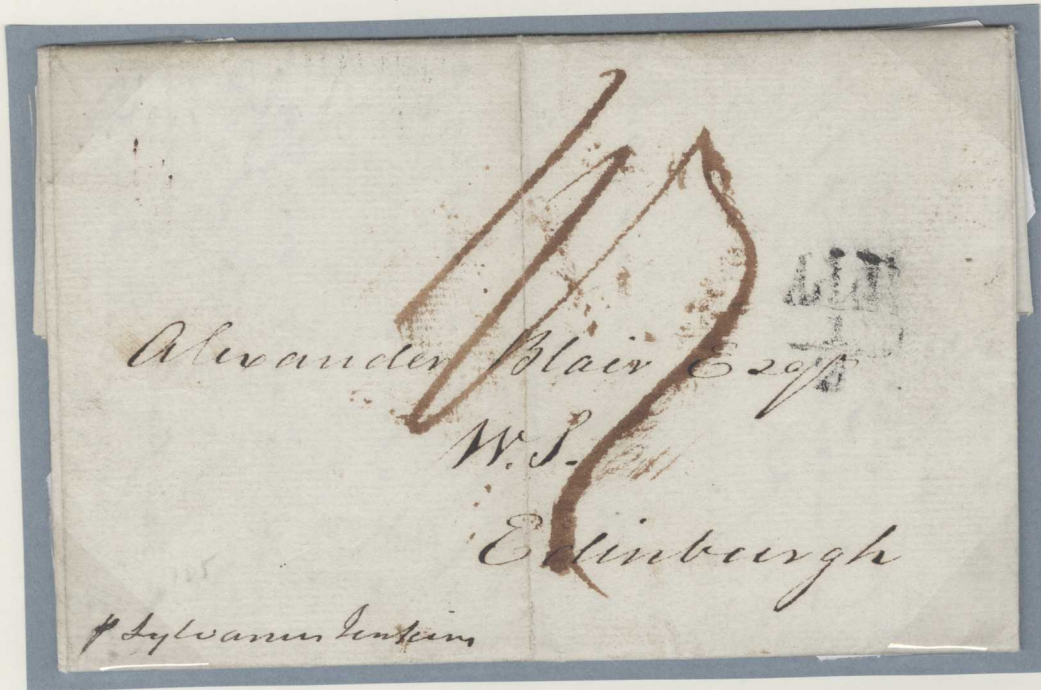 Alexander Blair Esqr
W.S.
Edinburgh
p Sylvanus Jenkins